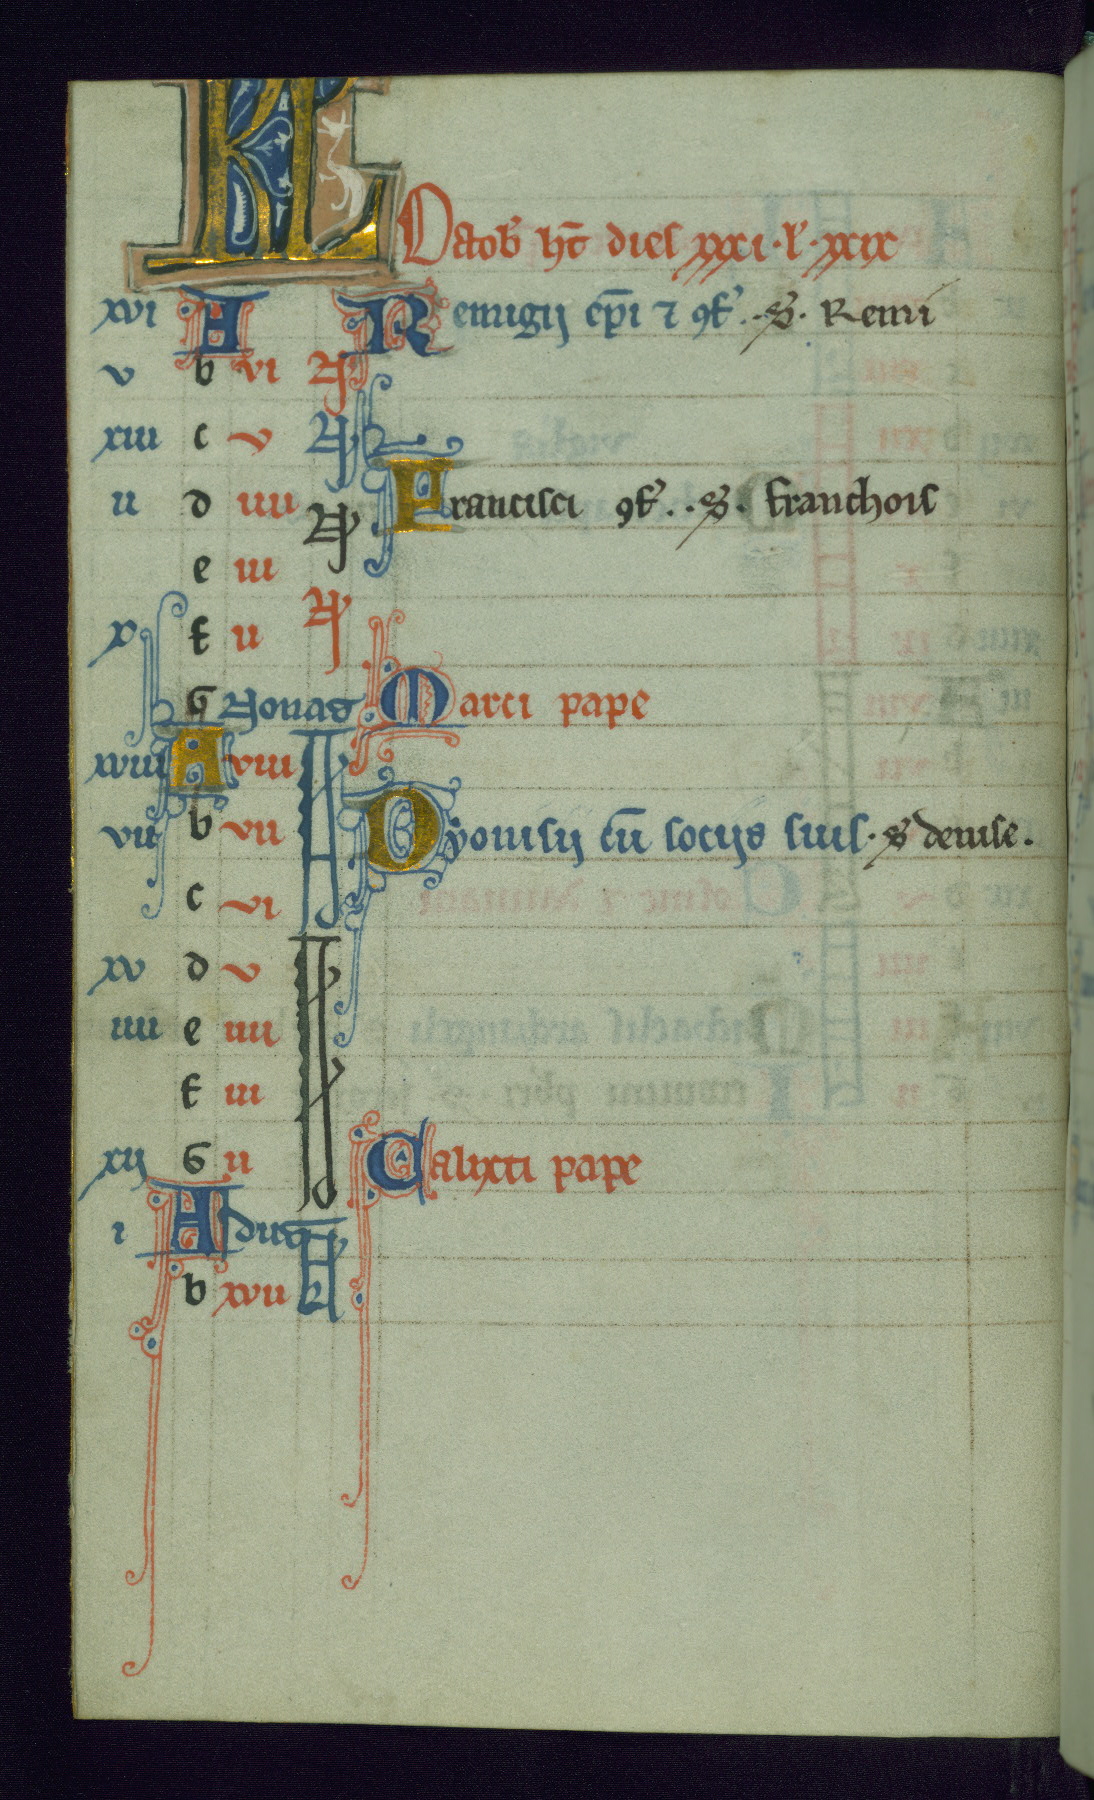 KL Octob' ht dies xxxi · l' · xxix
xvi A Remigij epi ⁊ ꝯf'. . S. Remi
v b vi N
xiii c v N
ii d iiii N Francisci ꝯf'. . S. franchois
e iii
x f ii N
G Nonas Marci pape
xviii A viii Id
vii b vii Dyonisij cu socijs suis. S denise.
c vi
xv d v Id
iiii e iiii
f iii
xii G ii Calixti pape
i A Idus
b xvii kl